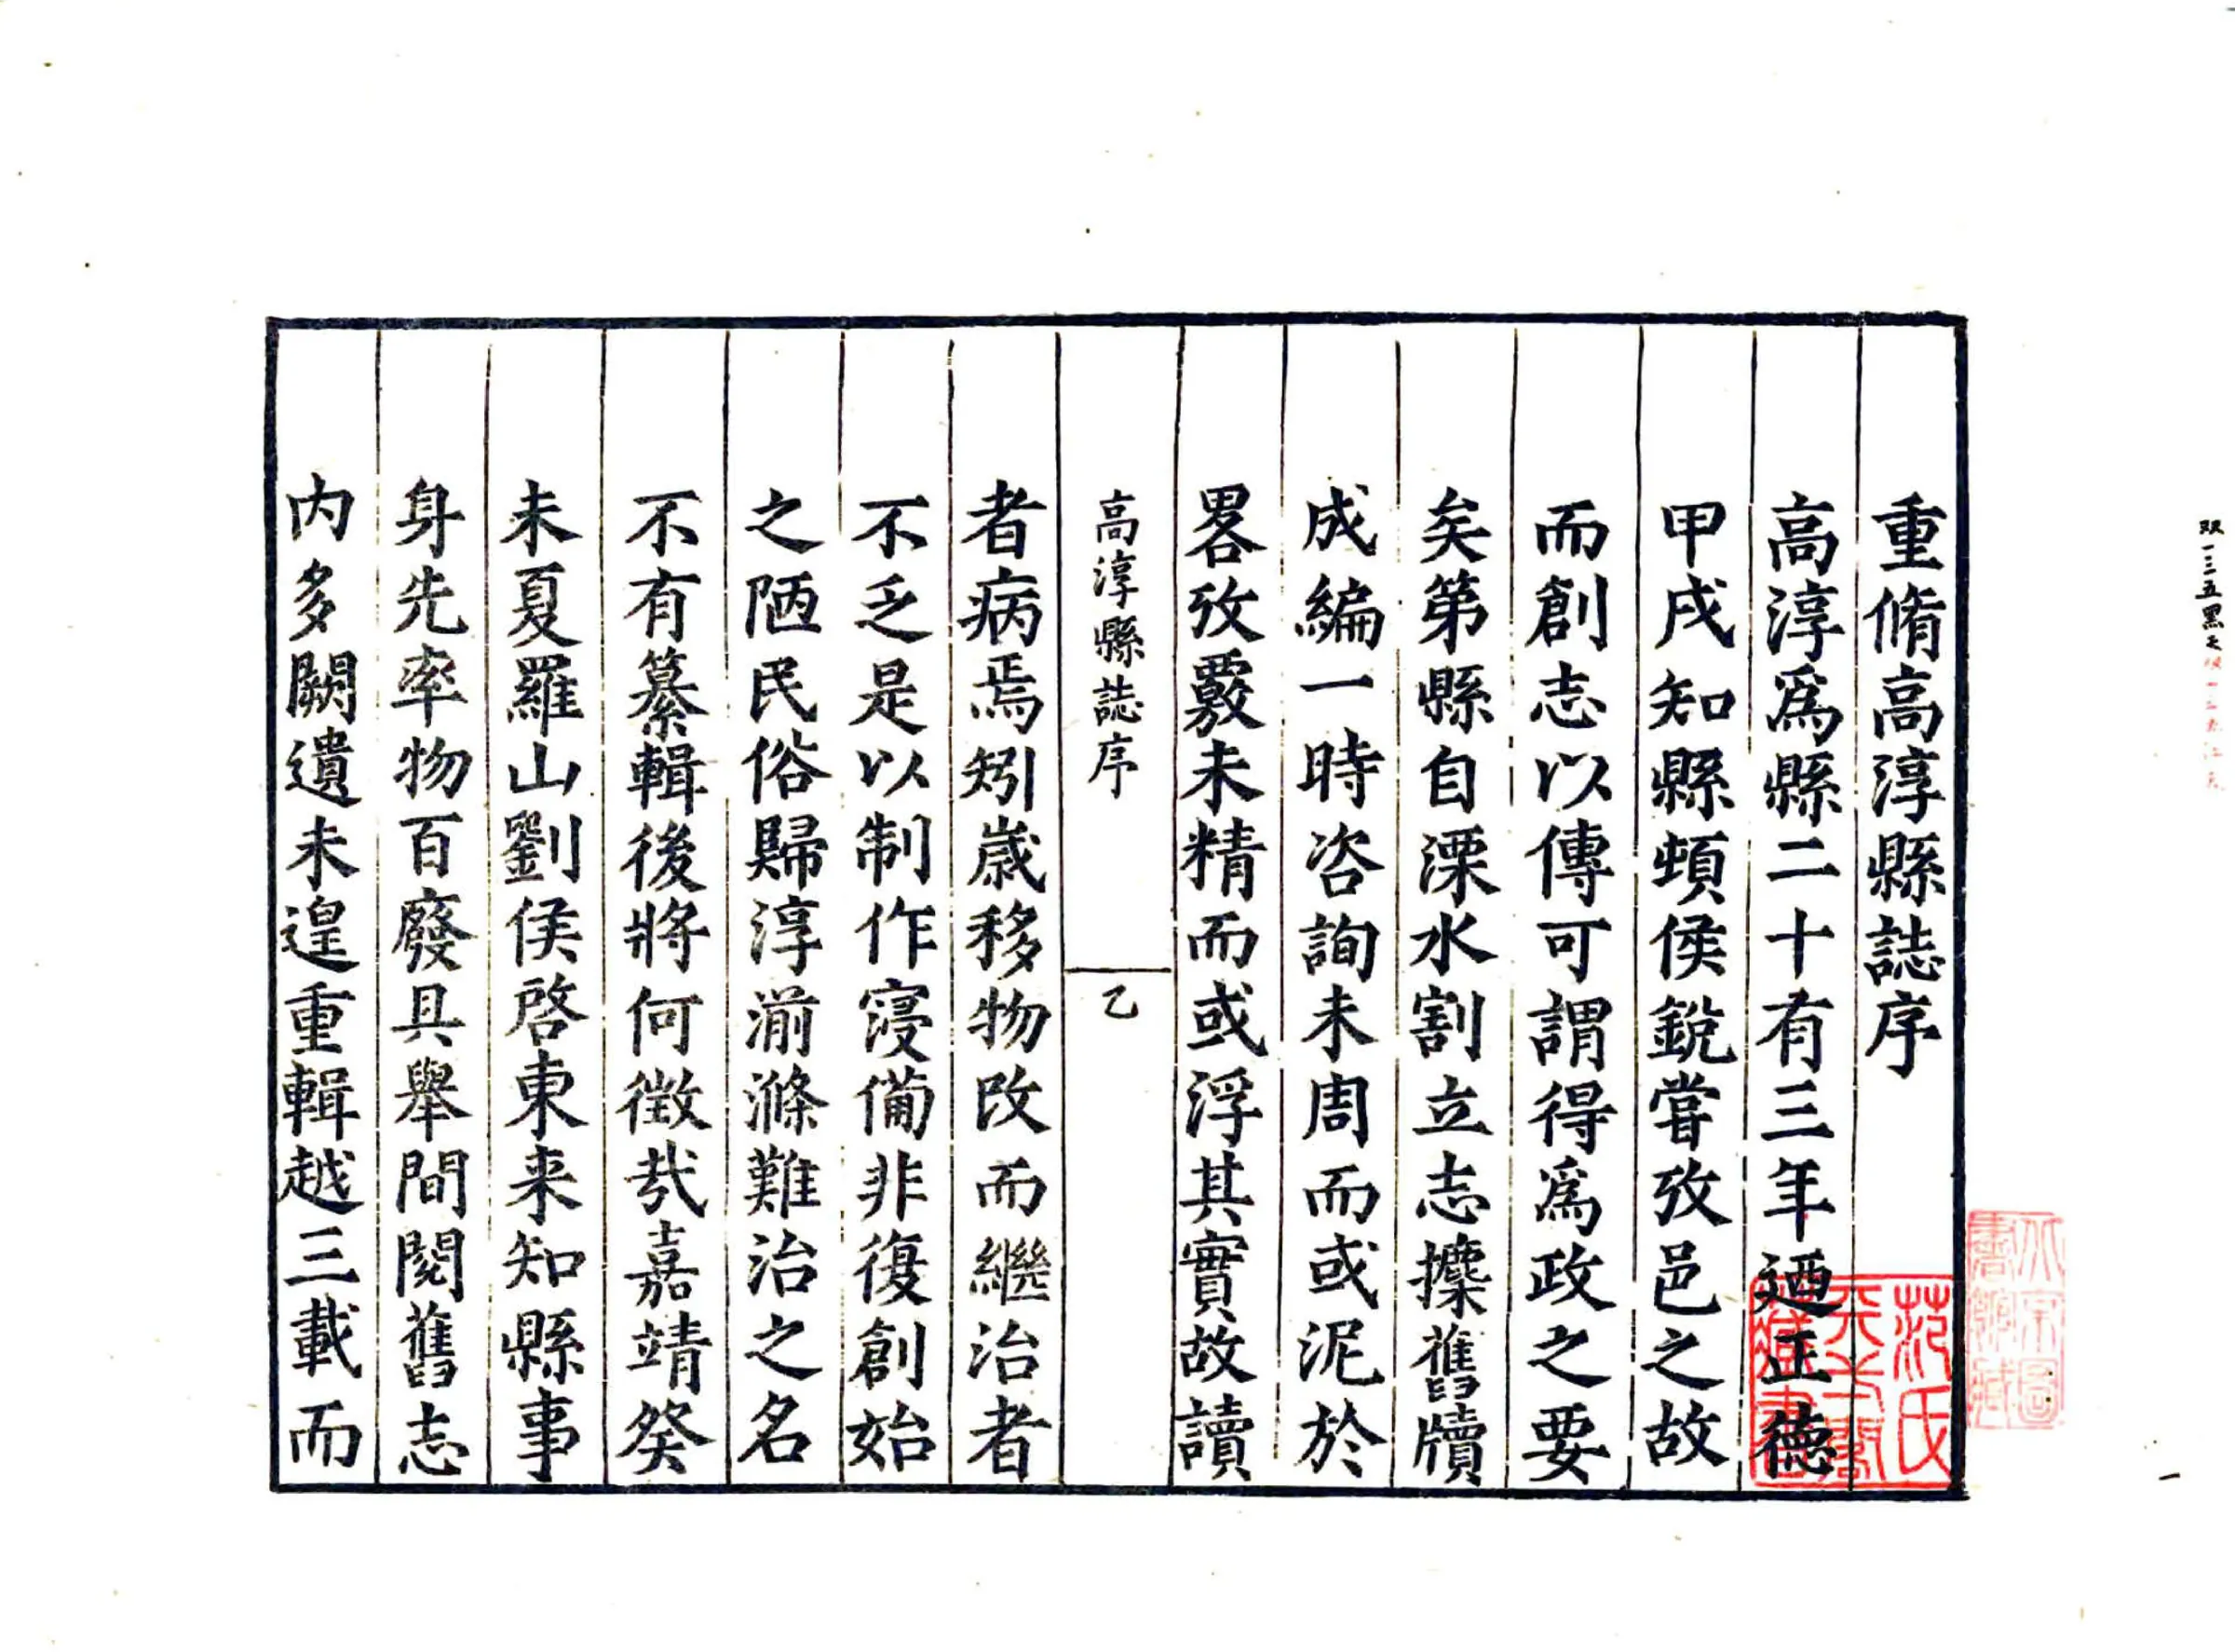 重脩高淳縣誌序
高淳爲縣二十有三年廼正德
甲戌知縣頓侯銳嘗攷邑之故
而創志以傳可謂得爲政之要
矣第縣自溧水割立志攈舊牘
成編一時咨詢未周而或泥於
畧攷覈未精而或浮其實故讀
高淳縣誌序
乙
者病焉矧歲移物改而繼治者
不乏是以制作寖備非復創始
之陋民俗歸淳湔滌難治之名
不有纂輯後將何徵哉嘉靖癸
未夏羅山劉侯啓東来知縣事
身先率物百廢具舉間閱舊志
内多闕遺未遑重輯越三載而
范氏
天一閣
藏書